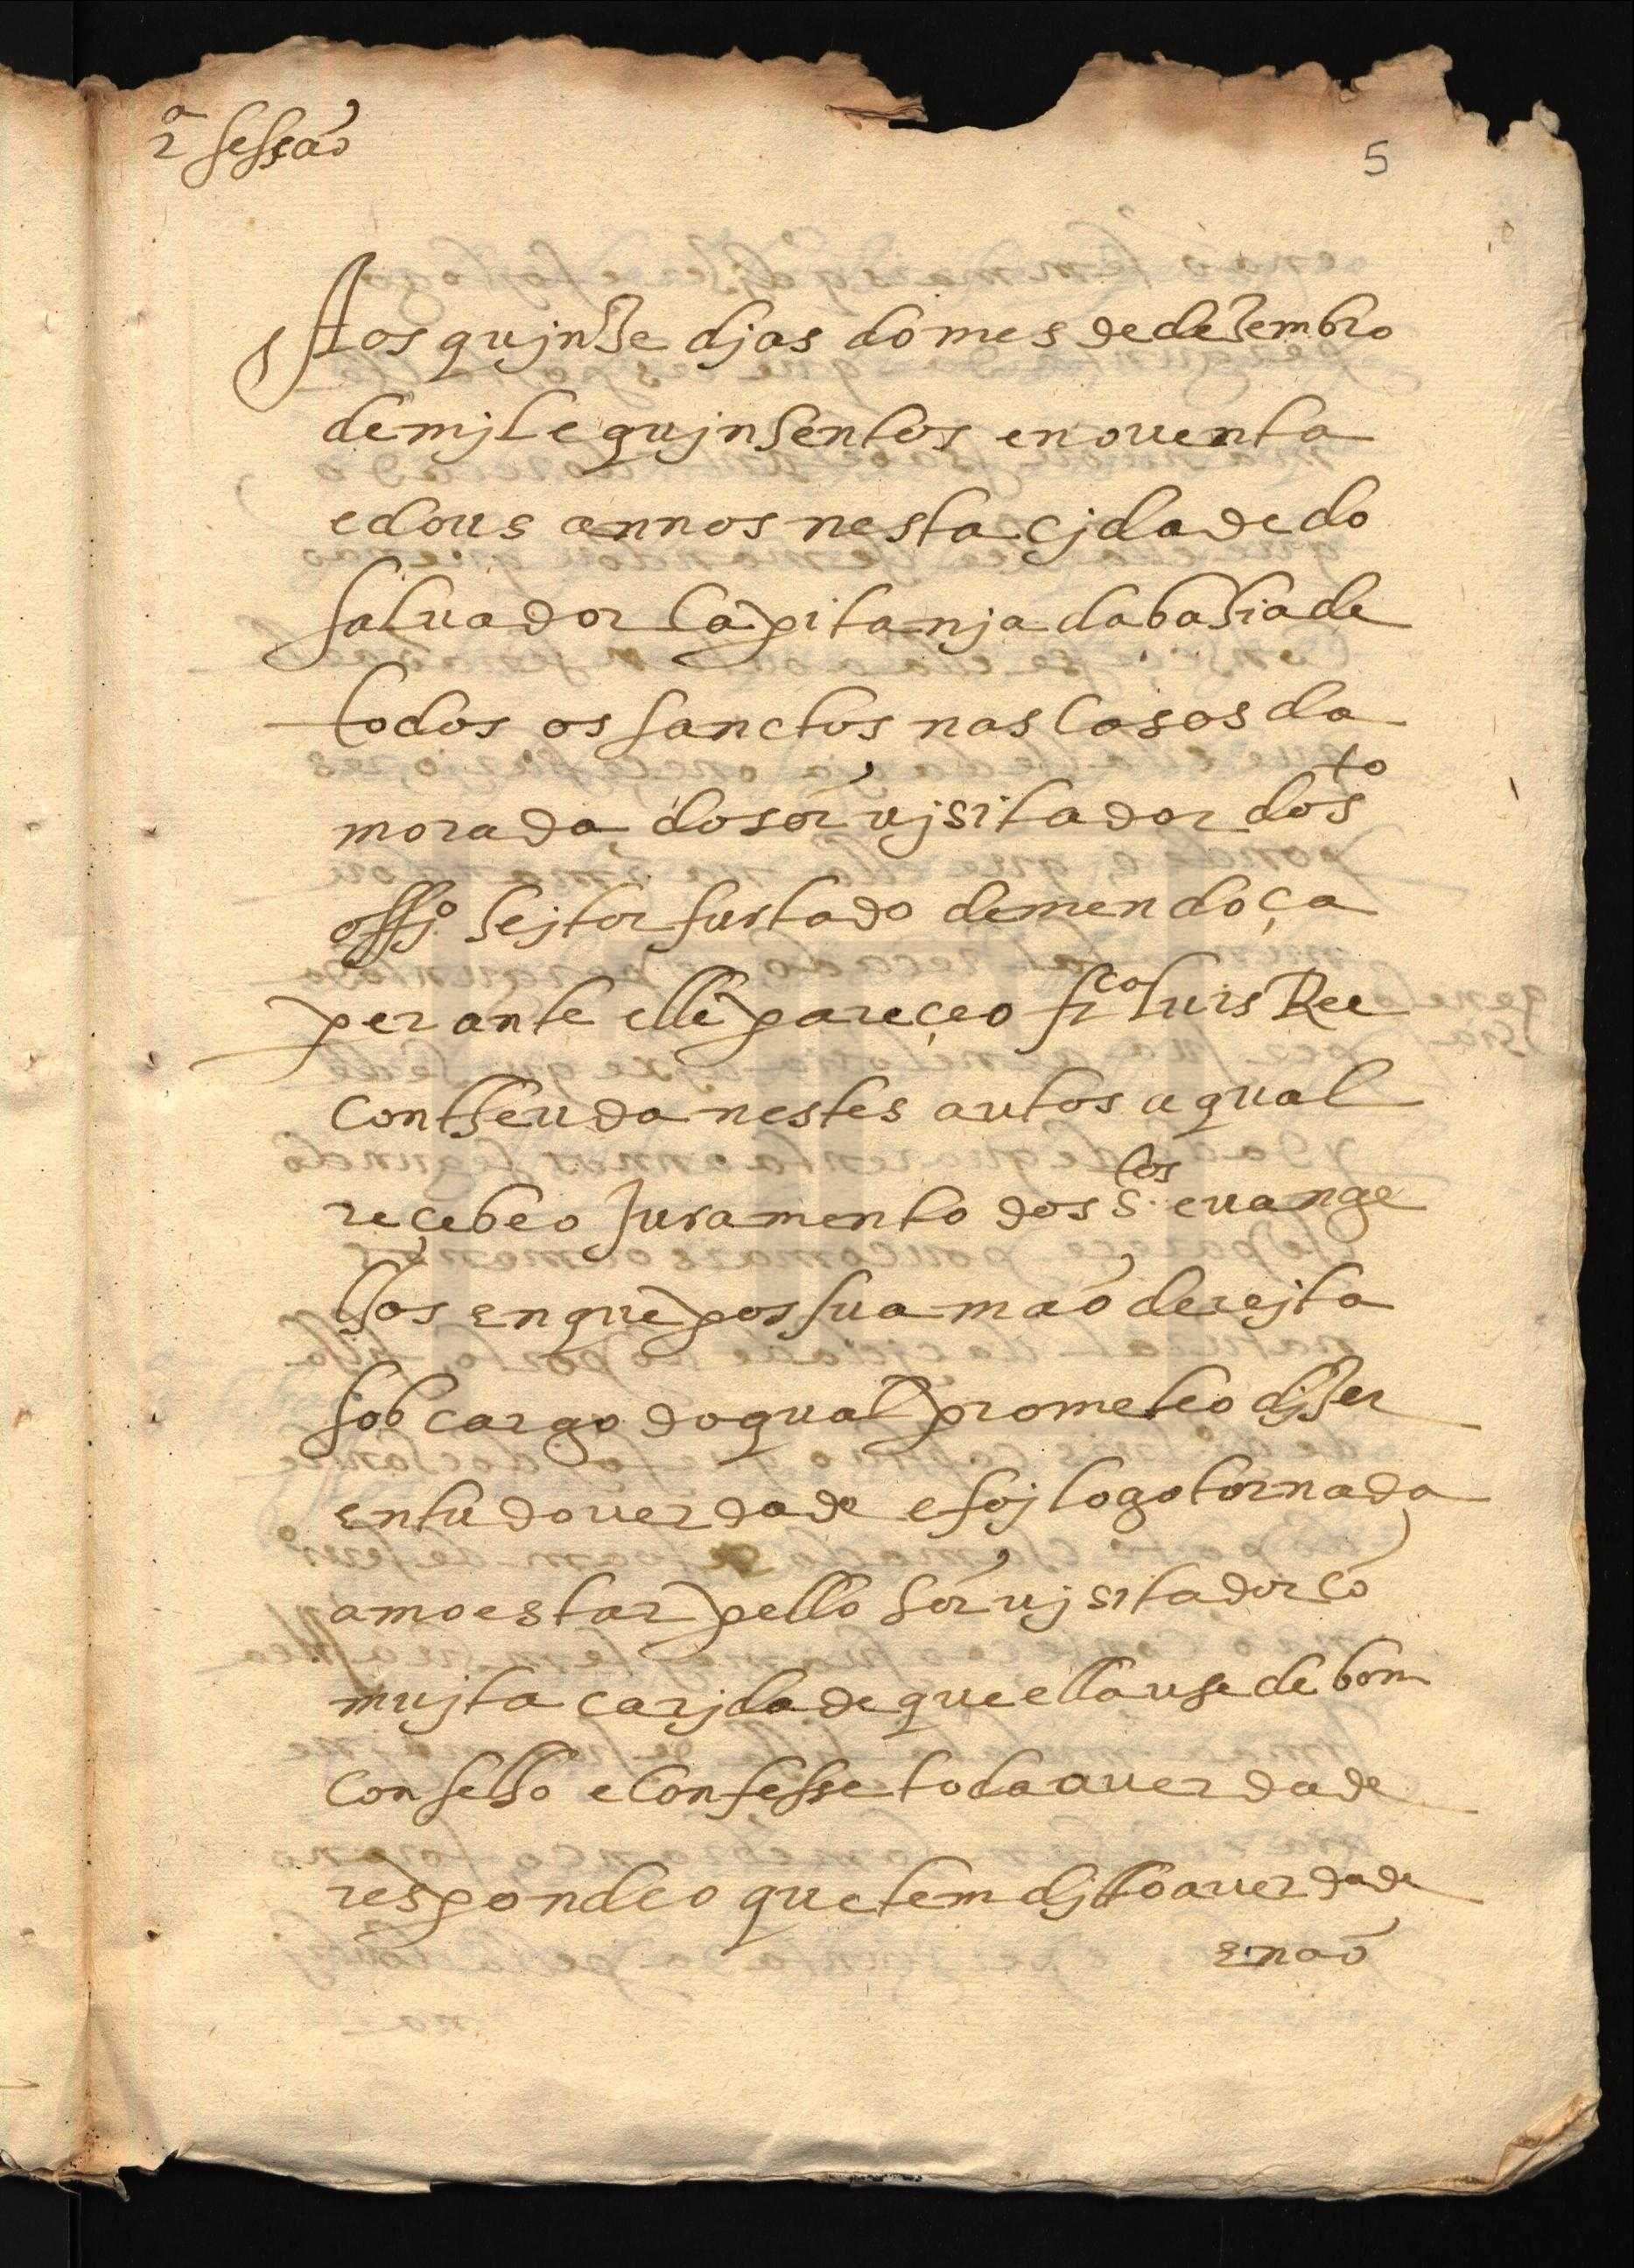 2ª sessaõ
5
Aos qujnze djas do mes de dezembro
de mjl e qujnhentos e nouenta
e dous annos nesta çjdade do
saluador Capitanja da bahia de
todos os sanctos nas Casas da
morada do sõr ujsitador do s.to
offj.o hejtor furtado de mendoça
perante elle pareçeo fr.ca luis Ree
contheuda nestes autos a qual
reçebeo Juramento dos S.tos euange
lhos en que pos sua maõ derejta
sob cargo do qual prometeo djzer
en tudo uerdade e foj logo tornada
amoestar pello sõr ujsitador cõ
mujta carjdade que ella use de bom
conselho e Confesse toda a uerdade
respondeo que tem djtto a uerdade
e naõ